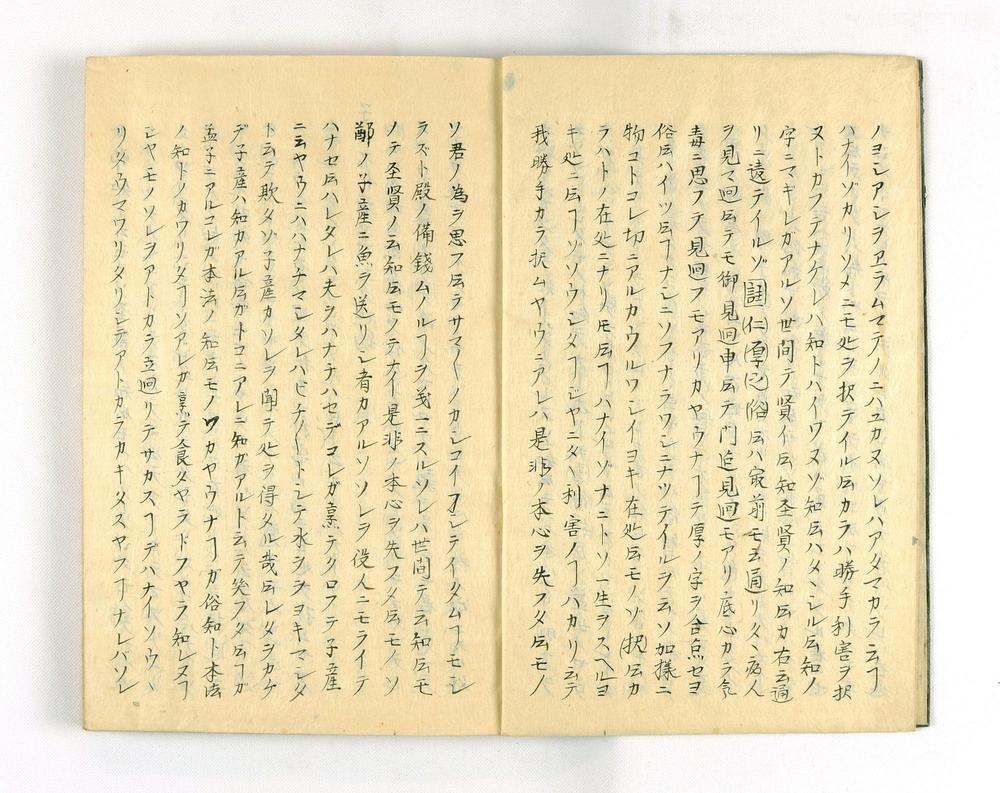 ノヨシアシヲヱラムマテノニハユカヌソレハアタマカラ云ヿ
ハナイゾカリソメニモ処ヲ択テイル𪜈カラハ勝手利害ヲ択
ヌトカフデナケレハ知トハイワヌゾ知𫝆ハタヾシル𫝆知ノ
字ニマギレガアルソ世間テ賢イ𫝆知圣賢ノ知𫝆カ右云通
リニ遠テイルゾ註仁厚之俗𫝆ハ最前モ云通リタヾ病人
ヲ見マ回𫝆テモ御見回申𫝆テ門迄見回モアリ底心カラ気
毒ニ思フテ見回フモアリカヤウナヿテ厚ノ字ヲ合点セヨ
俗𫝆ハイツ𫝆ヿナシニソフナラワシニナツテイルヲ云ソ加様ニ
物コトコレ切ニアルカウルワシイヨキ在処𫝆モノゾ択𫝆カ
ラハトノ在処ニナリ𪜈𫝆ヿハナイゾナニトソ一生ヲスヘルヨ
キ処ニ𫝆ヿゾソウシタヿジヤニタヾ利害ノヿハカリ云テ
我勝手カラ択ムヤウニアレハ是非ノ本心ヲ失フタ𫝆モノ
ソ君ノ為ヲ思フ𫝆テサマ〱ノカシコイヿシテイタムヿモシ
ラズト殿ノ備銭ムノルヿヲ義ニニスルソレハ世間テ云知𫝆モ
ノテ圣賢ノ云知𫝆モノテナイ是非ノ本心ヲ失フタ𫝆モノソ
鄭ノ子産ニ魚ヲ送リシ者カアルソソレヲ役人ニモライテ
ハナセ𫝆ハレタレハ夫ヲハナチハセデコレガ烹テクロフテ子産
ニ云ヤウニハハナチマシタレハビチ〱トシテ水シヲヨキマシタ
ト云テ欺タゾ子産カソレヲ聞テ処ヲ得タル哉𫝆レタヲカケ
デ子産ハ知カアル𫝆ガトコニアレニ知カアルト云テ笑フタ𫝆ヿガ
孟子ニアルコレガ本法ノ知𫝆モノワカヤウナヿガ俗知ト本法
ノ知トノカワリタヿソアレガ烹テ食タヤラドフヤラ知レヌヿ
シヤモノソレヲアトカラ立回リテサカスヿデハナイソウヽ
リタウマワリタリシテアトカラカキタスヤフヿナレバソレ